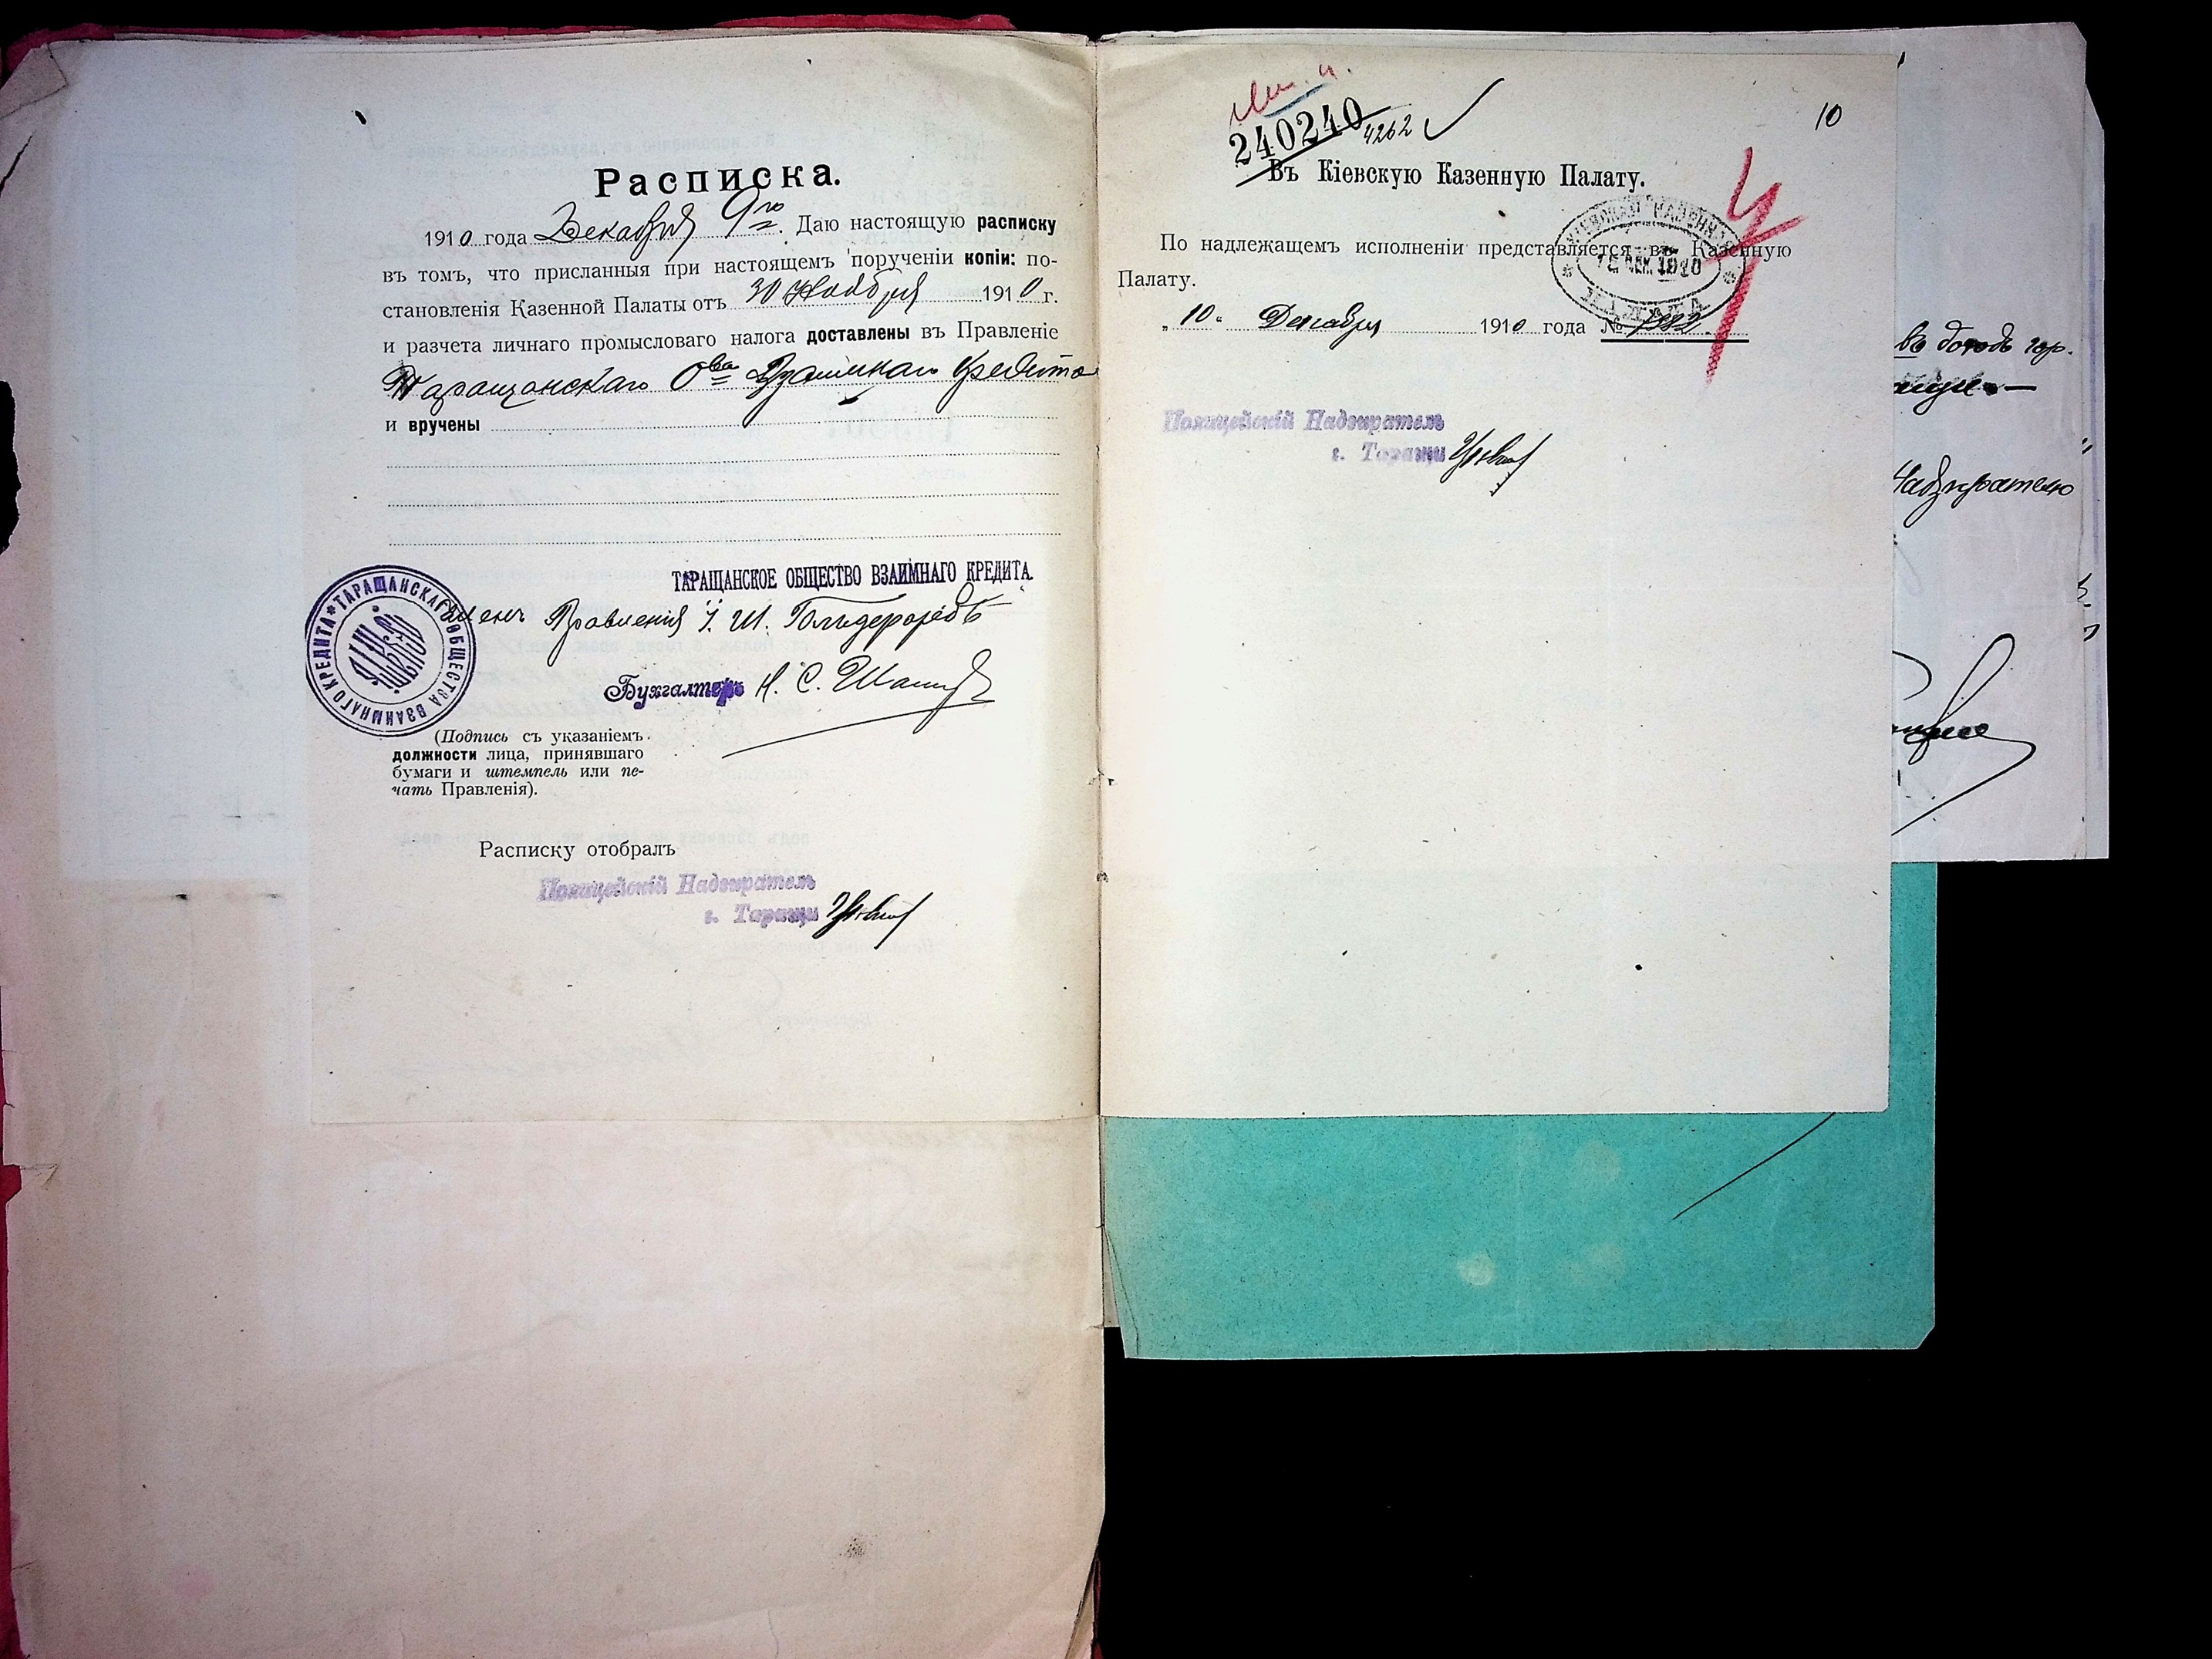 Расписка.
1910 года Декабря 9го. Даю настоящую расписку
въ томъ, что присланныя при настоящемъ порученіи копіи: по-
становленія Казенной Палаты отъ 30 Ноября 1910 г.
и разчета личнаго промысловаго налога доставлены въ Правленіе
Таращанскаго Ова Взаимнаго Кредита
и вручены
ТАРАЩАНСКОЕ ОБЩЕСТВО ВЗАИМНАГО КРЕДИТА.
ТАРАЩАНСКАГО ОБЩЕСТВА ВЗАИМНАГО КРЕДИТА
Членъ Правленія І. Ш.
Бухгалтеръ Н. С.
(Подпись съ указаніемъ
должности лица, принявшаго
бумаги и штемпель или пе-
чать Правленія).
Расписку отобралъ
Полицейскій Надзиратель
г. Таращи
10
240240 4262
Въ Кіевскую Казенную Палату.
По надлежащемъ исполненіи представляется въ Казенную
Палату.
КІЕВСКАЯ КАЗЕННАЯ
ДЕК 1910
ПАЛАТА
„10" Декабря 1910 года №
Полицейскій Надзиратель
г. Таращи
въ доходъ гор.
Надзирателю